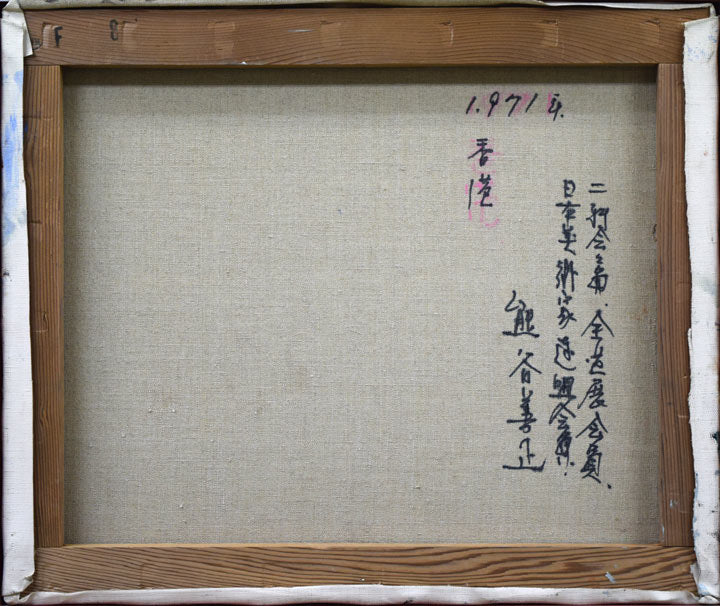 F 8
1.971年
香港
二紀会々員、全道展会員、
日本美術家連盟会員、
熊谷善正